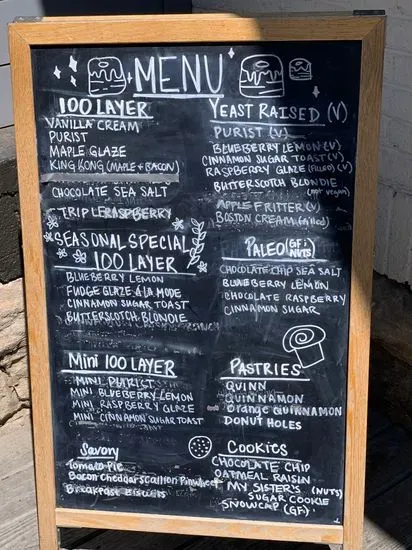 MENU
100 LAYER
VANILLA CREAM
PURIST
MAPLE GLAZE
KING KONG (MAPLE + BACON)
CHOCOLATE SEA SALT
TRIPLE RASPBERRY
SEASONAL SPECIAL
100 LAYER
BLUEBERRY LEMON
FUDGE GLAZE À LA MODE
CINNAMON SUGAR TOAST
BUTTERSCOTCH BLONDIE
Mini 100 LAYER
MINI PURIST
MINI BLUEBERRY LEMON
MINI RASPBERRY GLAZE
MINI CINNAMON SUGAR TOAST
Savory
Tomato Pie
Bacon Cheddar Scallion Pinwheel
Breakfast Biscuits
YEAST RAISED (V)
PURIST (V)
BLUEBERRY LEMON (V)
CINNAMON SUGAR TOAST (V)
RASPBERRY GLAZE (FILLED) (V)
BUTTERSCOTCH BLONDIE
(not vegan)
APPLE FRITTER (V)
BOSTON CREAM (filled)
PALEO (GF & NUTS)
CHOCOLATE CHIP SEA SALT
BLUEBERRY LEMON
CHOCOLATE RASPBERRY
CINNAMON SUGAR
PASTRIES
QUINN
QUINNAMON
Orange QUINNAMON
DONUT HOLES
Cookies
CHOCOLATE CHIP
OATMEAL RAISIN
MY SISTER'S (NUTS)
SUGAR COOKIE
SNOWCAP (GF)